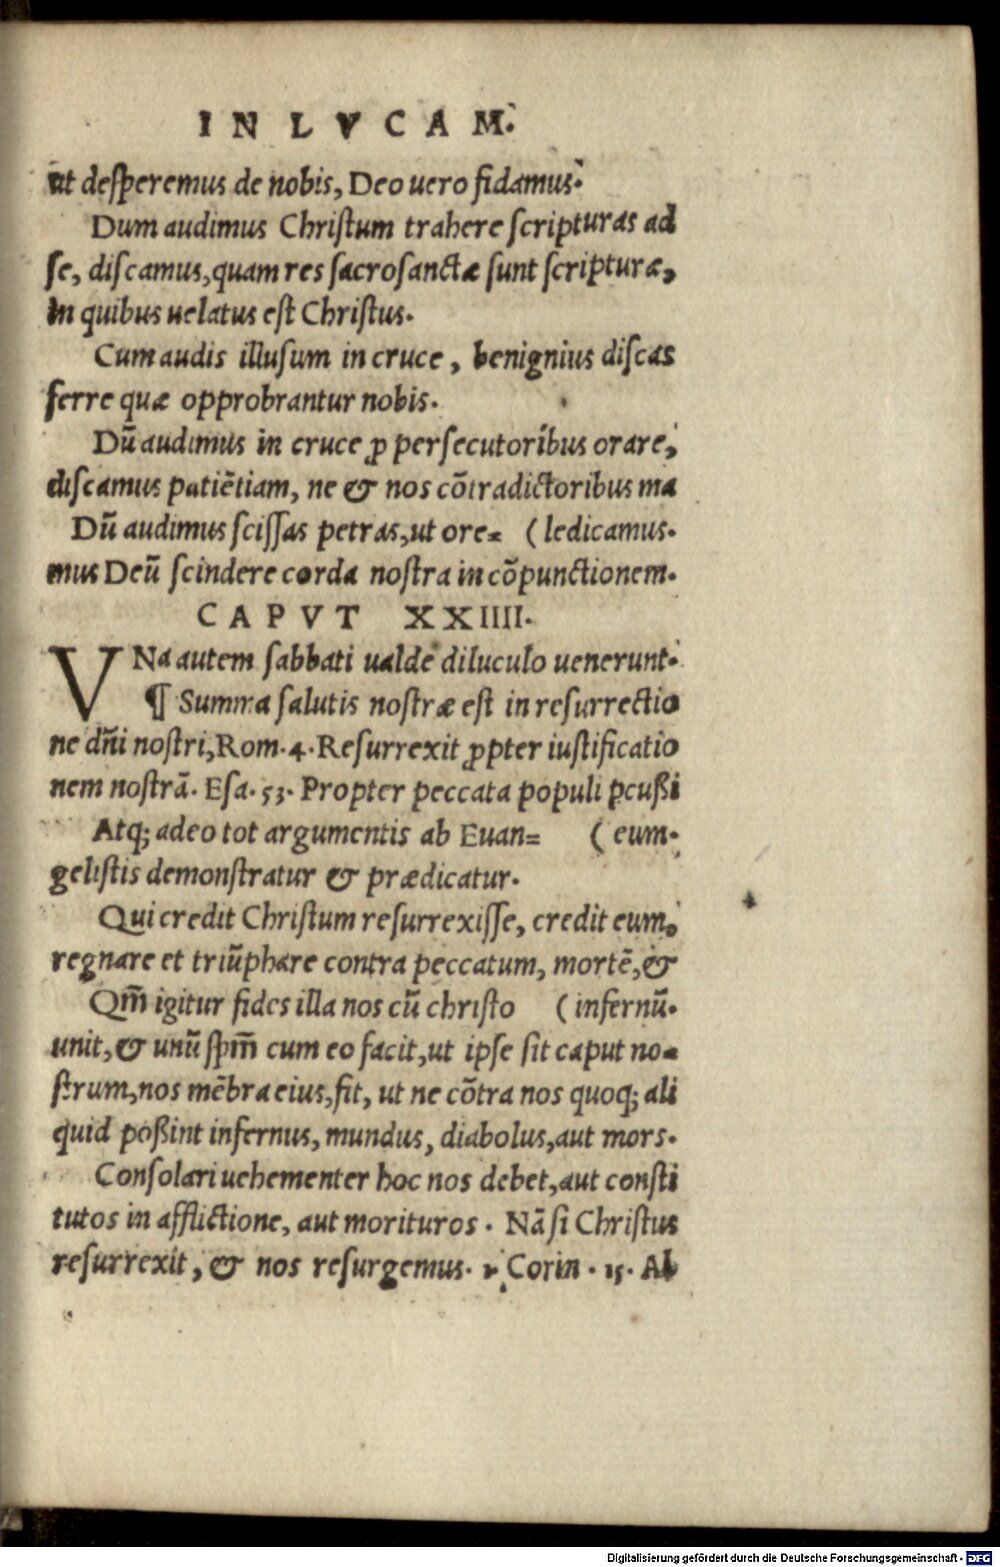 IN LVCAM.
ut desperemus de nobis, Deo uero fidamus.
Dum audimus Christum trahere scripturas ad
se, discamus, quam res sacrosanctæ sunt scripturæ,
in quibus uelatus est Christus.
Cum audis illusum in cruce, benignius discas
ferre quæ opprobrantur nobis.
Dũ audimus in cruce ꝓ persecutoribus orare,
discamus patiẽtiam, ne & nos cõtradictoribus ma
Dũ audimus scissas petras, ut ore= (ledicamus.
mus Deũ scindere corda nostra in cõpunctionem.
CAPVT XXIIII.
VNa autem sabbati ualde diluculo uenerunt.
¶ Summa salutis nostræ est in resurrectio
ne dñi nostri, Rom. 4. Resurrexit ꝓpter iustificatio
nem nostrã. Esa. 53. Propter peccata populi pcußi
Atq; adeo tot argumentis ab Euan= (eum.
gelistis demonstratur & prædicatur.
Qui credit Christum resurrexisse, credit eum,
regnare et triũphare contra peccatum, mortẽ, &
Qm̃ igitur fides illa nos cũ christo (infernũ.
unit, & unũ spm̃ cum eo facit, ut ipse sit caput no=
strum, nos mẽbra eius, fit, ut ne cõtra nos quoq; ali
quid poßint infernus, mundus, diabolus, aut mors.
Consolari uehementer hoc nos debet, aut consti
tutos in afflictione, aut morituros. Nã si Christus
resurrexit, & nos resurgemus. 1. Corin. 15. Ab
Digitalisierung gefördert durch die Deutsche Forschungsgemeinschaft - DFG